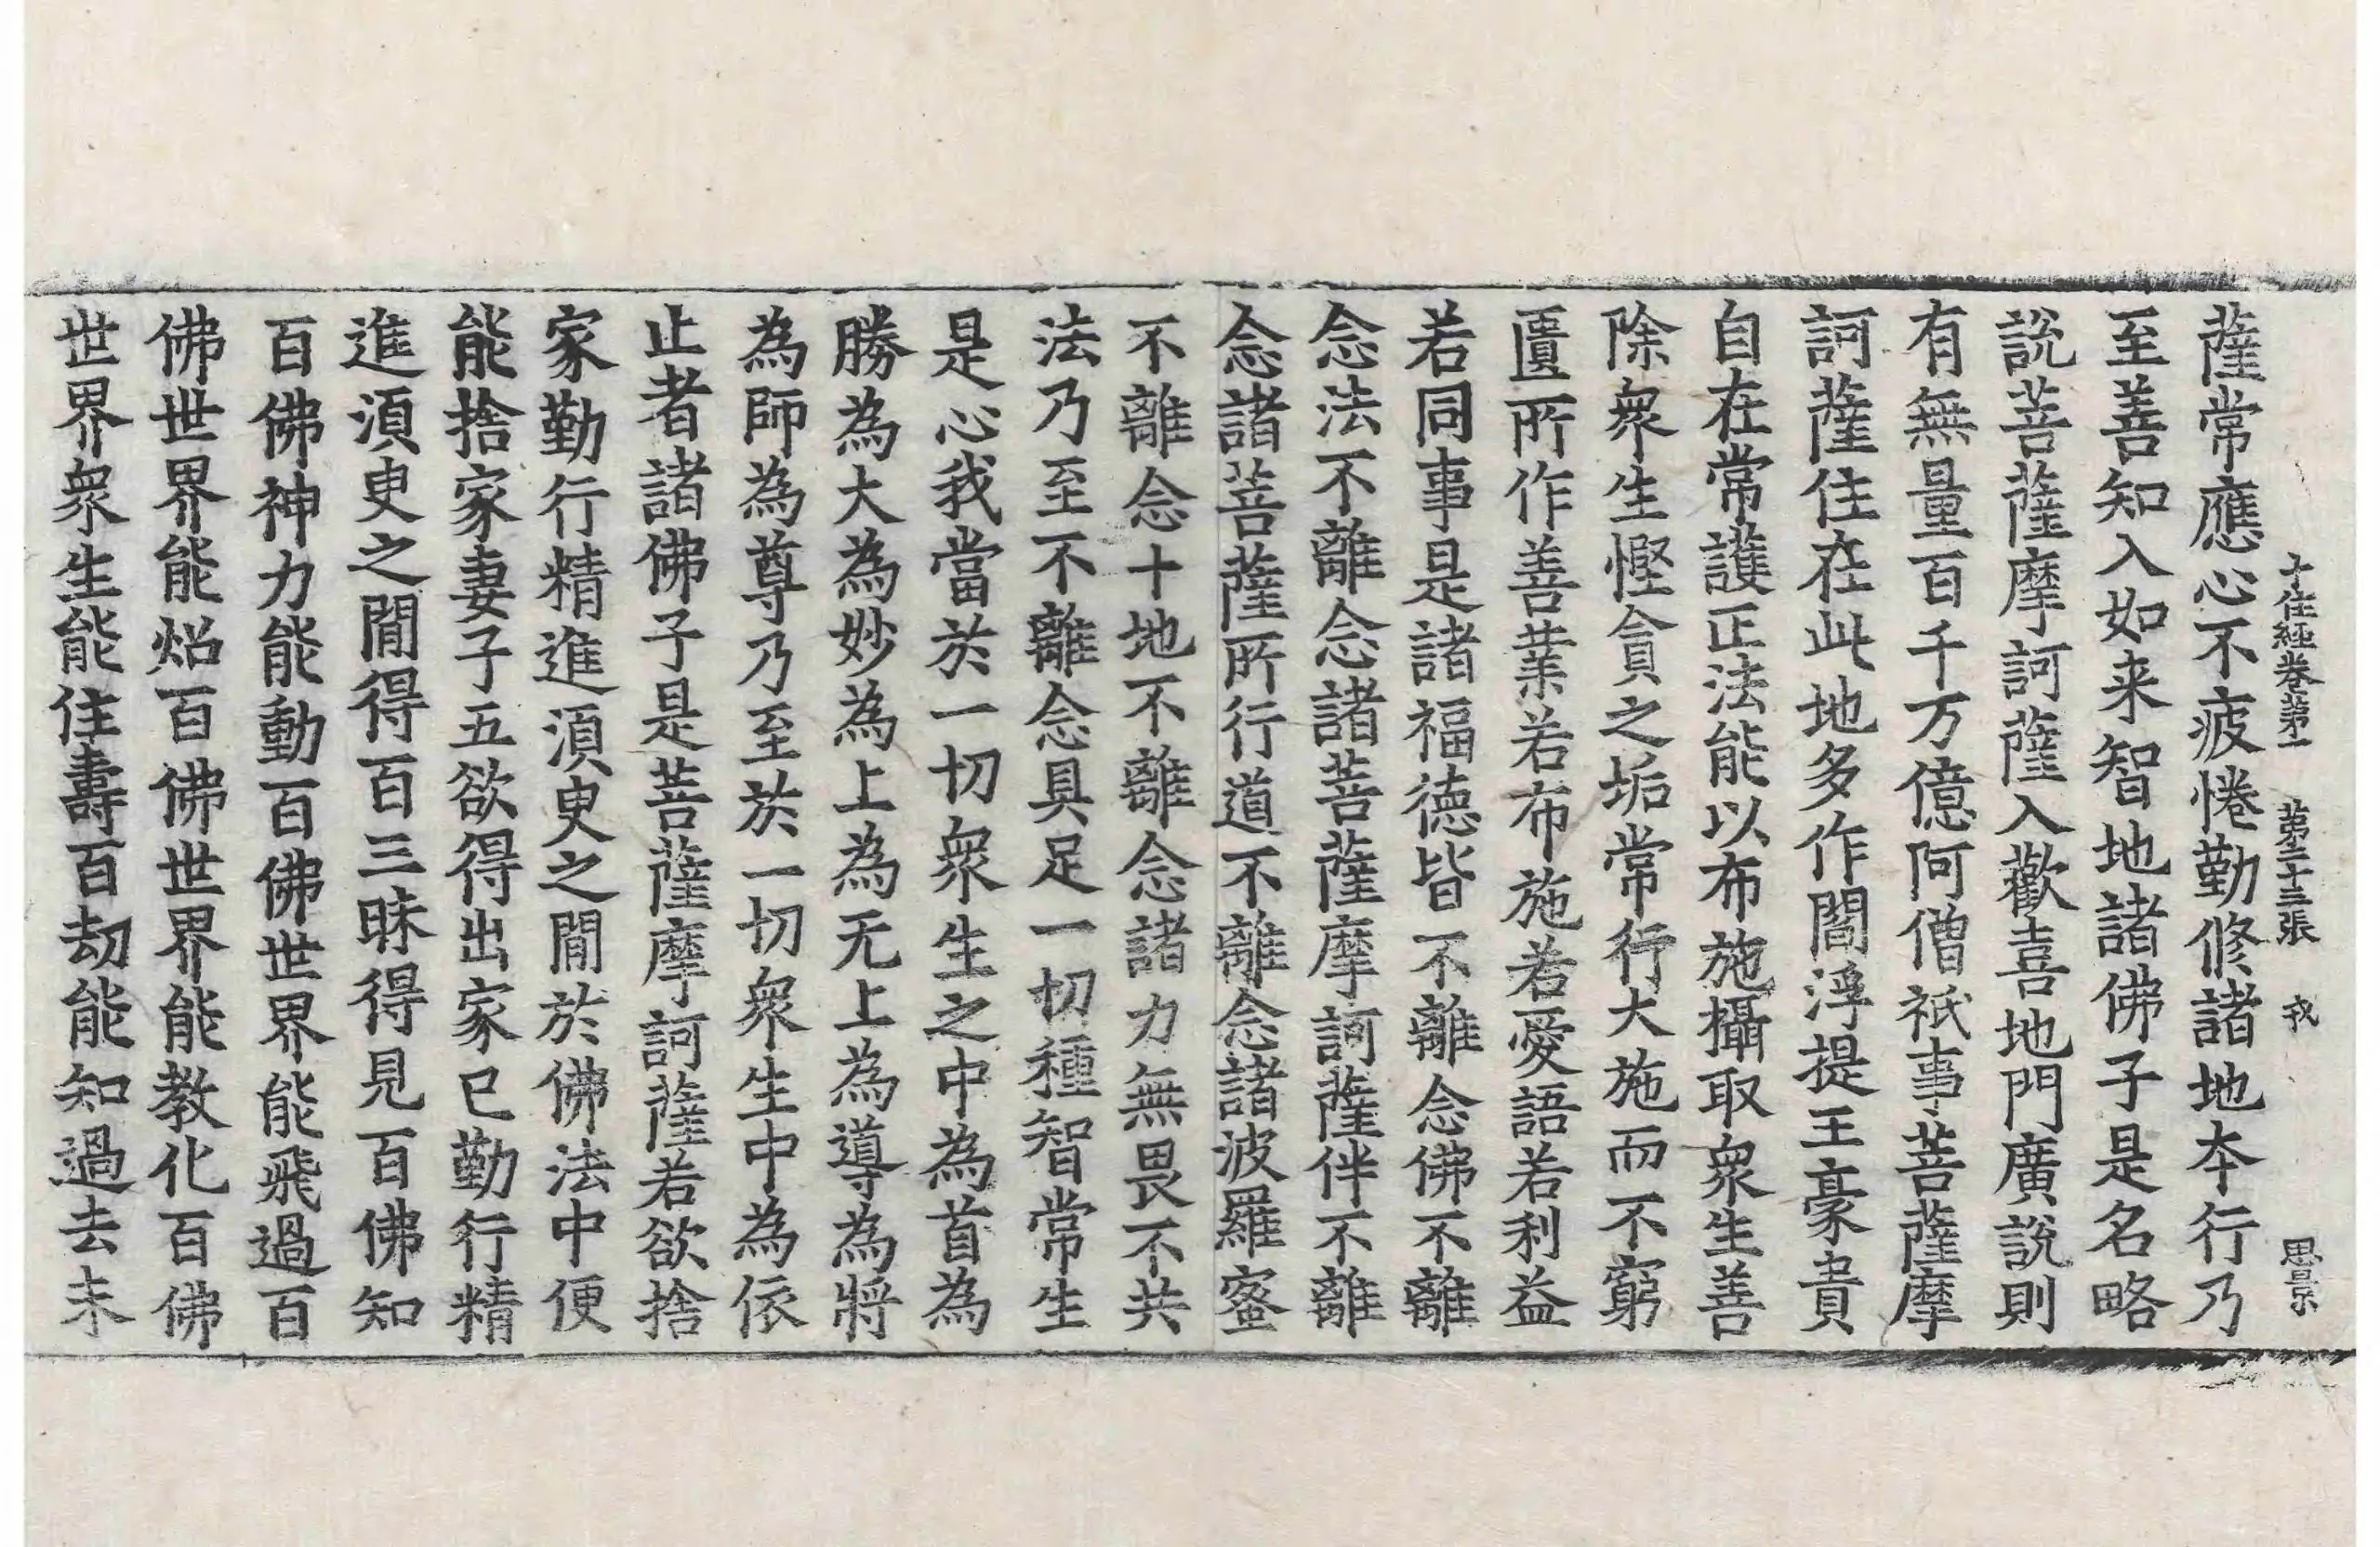 十住經卷第一　第二十三張　我　思景
薩常應心不疲惓勤修諸地本行乃
至善知入如来智地諸佛子是名略
說菩薩摩訶薩入歡喜地門廣說則
有無量百千万億阿僧祇事菩薩摩
訶薩住在此地多作閻浮提王豪貴
自在常護正法能以布施攝取衆生善
除衆生慳貪之垢常行大施而不窮
匱所作善業若布施若愛語若利益
若同事是諸福德皆不離念佛不離
念法不離念諸菩薩摩訶薩伴不離
念諸菩薩所行道不離念諸波羅蜜
不離念十地不離念諸力無畏不共
法乃至不離念具足一切種智常生
是心我當於一切衆生之中為首為
勝為大為妙為上為无上為導為將
為師為尊乃至於一切衆生中為依
止者諸佛子是菩薩摩訶薩若欲捨
家勤行精進湏臾之間於佛法中便
能捨家妻子五欲得出家已勤行精
進湏臾之間得百三昧得見百佛知
百佛神力能動百佛世界能飛過百
佛世界能炤百佛世界能教化百佛
世界衆生能住壽百劫能知過去未